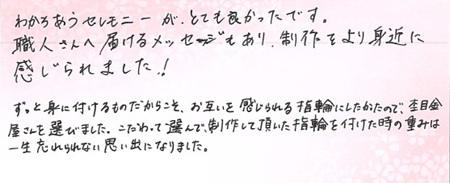 わかちあうセレモニーが、とても良かったです。
職人さんへ届けるメッセージもあり、制作をより身近に
感じられました！
ずっと身に付けるものだからこそ、お互いを感じられる指輪にしたかたので、杢目金
屋さんを選びました。こだわって選んで、制作して頂いた指輪を付けた時の重みは
一生忘れられない思い出になりました。